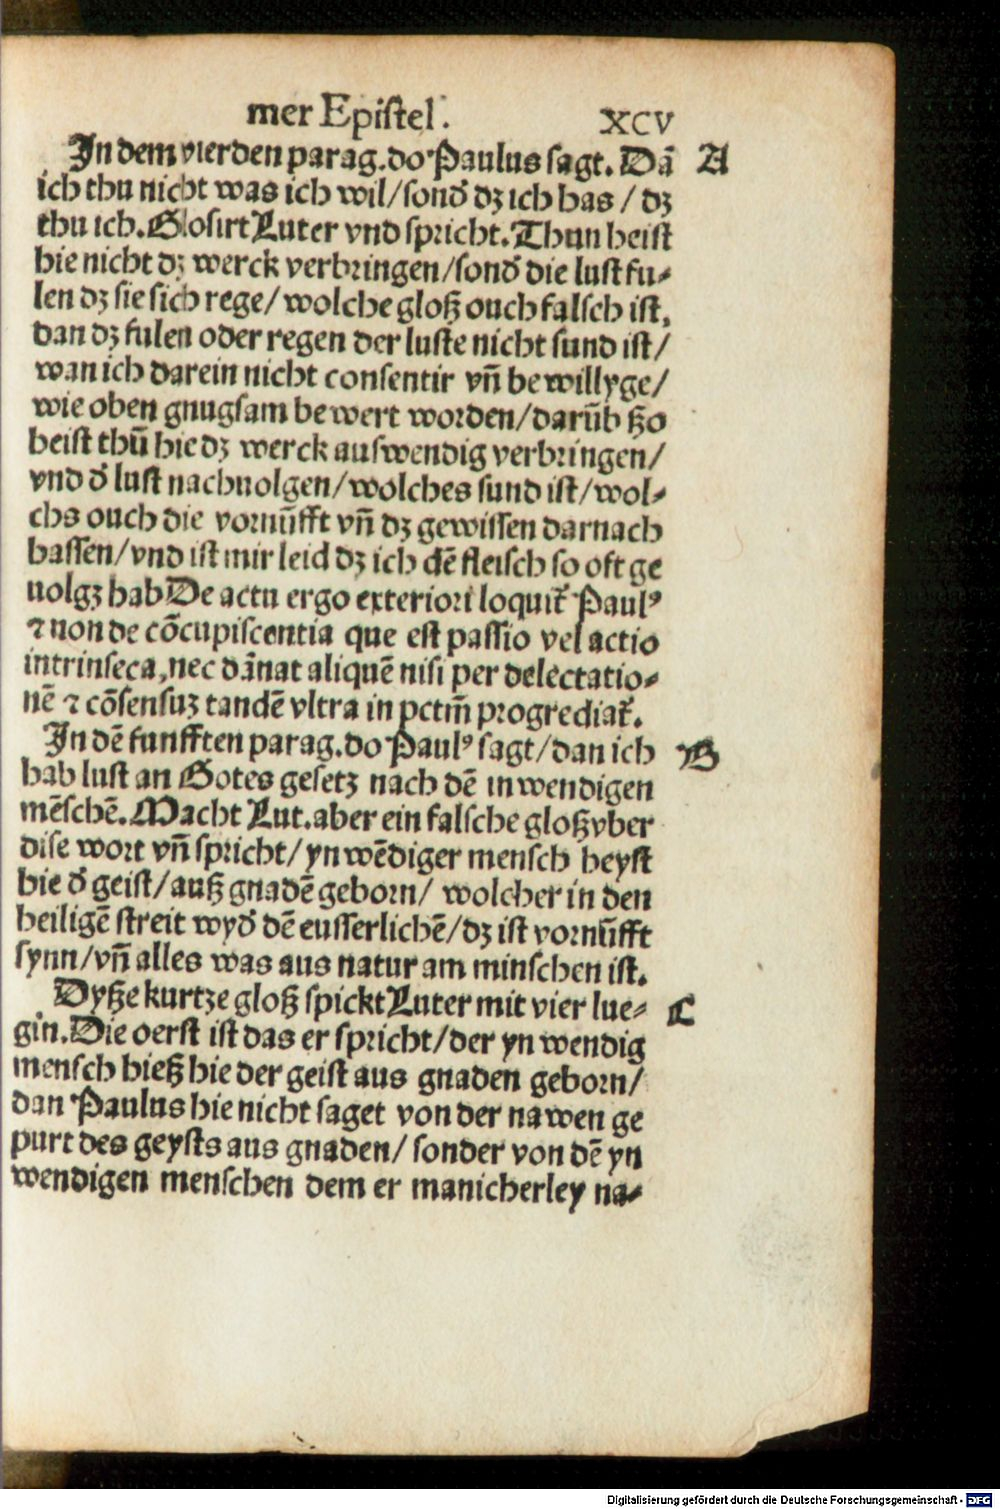 mer Epistel. XCV
In dem vierden parag. do Paulus sagt. Dā A
ich thu nicht was ich wil/sonđ dz ich has / dz
thu ich. Glosirt Luter vnd spricht. Thun heist
hie nicht dz werck verbringen/sonđ die lust fu-
len dz sie sich rege/ wolche gloß ouch falsch ist,
dan dz fulen oder regen der luste nicht sund ist/
wan ich darein nicht consentir vn̄ bewillyge/
wie oben gnugsam bewert worden/darūb ßo
heist thū hie dz werck auswendig verbringen/
vnd đ lust nachuolgen/wolches sund ist/wol-
chs ouch die vornūfft vn̄ dz gewissen darnach
hassen/vnd ist mir leid dz ich dē fleisch so oft ge
uolgz hab De actu ergo exteriori loquit᷑ Paulꝰ
⁊ non de cōcupiscentia que est passio vel actio
intrinseca, nec dānat aliquē nisi per delectatio-
nē ⁊ cōsensuz tandē vltra in pctm̄ progrediat᷑.
In dē funfften parag. do Paulꝰ sagt/dan ich B
hab lust an Gotes gesetz nach dē inwendigen
mēschē. Macht Lut. aber ein falsche gloß vber
dise wort vn̄ spricht/ yn wēdiger mensch heyst
hie đ geist/auß gnadē geborn/ wolcher in den
heiligē streit wyđ dē eusserlichē/dz ist vornūfft
synn/vn̄ alles was aus natur am minschen ist.
Dyße kurtze gloß spickt Luter mit vier lue- C
gin. Die oerst ist das er spricht/der yn wendig
mensch hieß hie der geist aus gnaden geborn/
dan Paulus hie nicht saget von der nawen ge
purt des geysts aus gnaden/ sonder von dē yn
wendigen menschen dem er manicherley na-
Digitalisierung gefördert durch die Deutsche Forschungsgemeinschaft - DFG